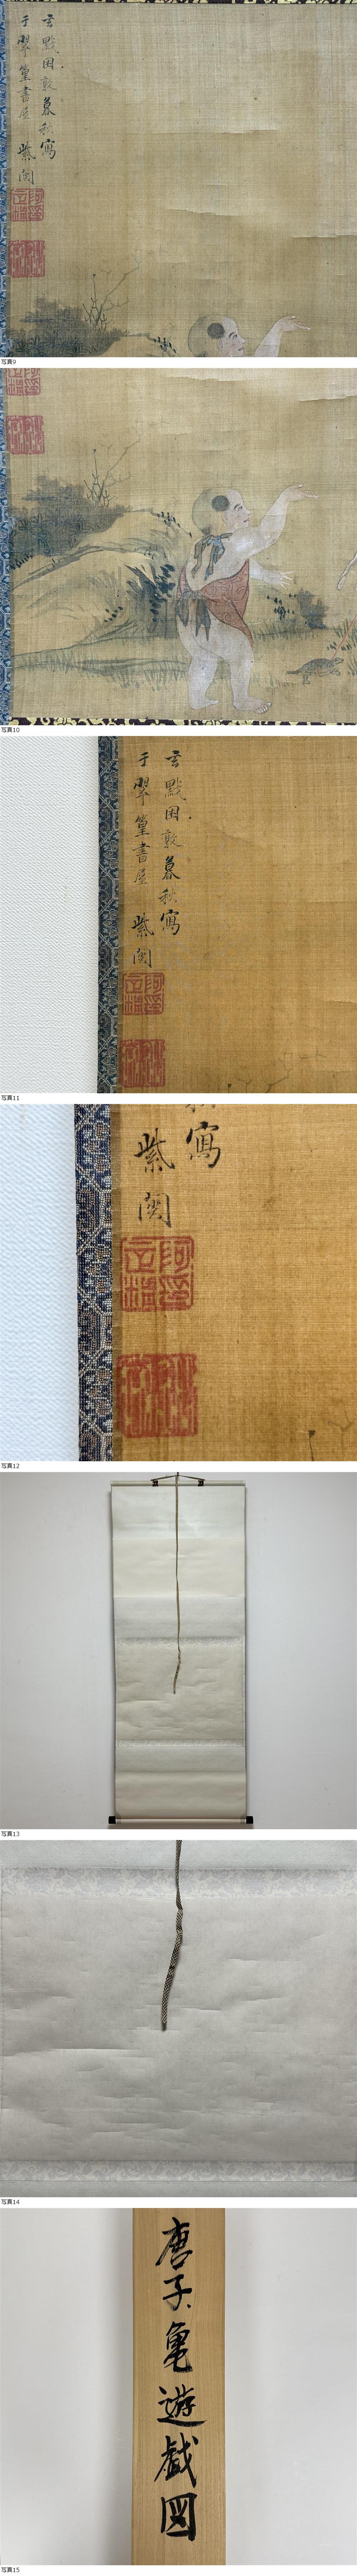 玄黓困敦暮秋寫
于翠篁書屋 紫
写真9
写真10
玄黓困敦暮秋寫
于翠篁書屋 紫
写真11
寫
紫
写真12
写真13
写真14
唐子亀遊戯図
写真15